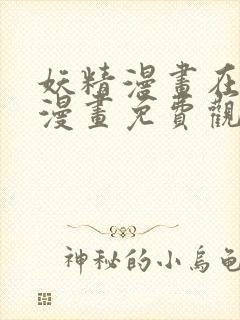 妖精漫畫在
漫畫免費觀
神秘的小烏龜